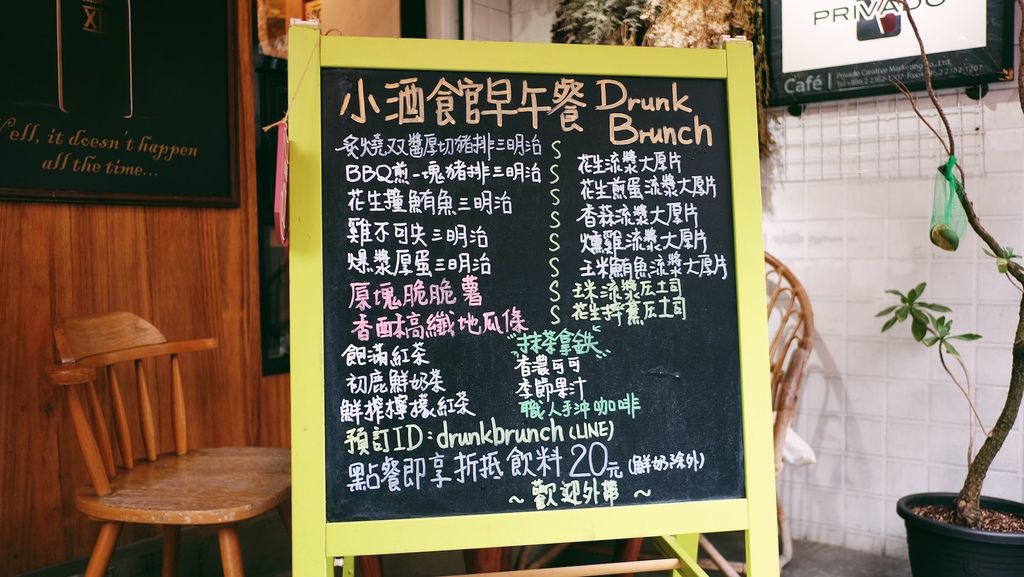 XI
Well, it doesn't happen
all the time...
PRIVADO
Café | Privado Creative Marketing Co., Ltd.
小酒館早午餐 Drunk Brunch
炙燒双醬厚切豬排三明治
BBQ煎一塊豬排三明治
花生撞鮪魚三明治
雞不可失三明治
爆漿厚蛋三明治
原塊脆脆薯
香酥高纖地瓜條
飽滿紅茶
初鹿鮮奶茶
鮮搾檸檬紅茶
S
S
S
S
S
S
S
花生流漿大厚片
花生煎蛋流漿大厚片
香蒜流漿大厚片
燻雞流漿大厚片
玉米鮪魚流漿大厚片
玉米流漿灰土司
花生拌薰灰土司
"抹茶拿鉄"
香濃可可
季節果汁
職人手沖咖啡
預訂ID:drunkbrunch(LINE)
點餐即享折抵飲料20元(鮮奶除外)
~歡迎外帶~